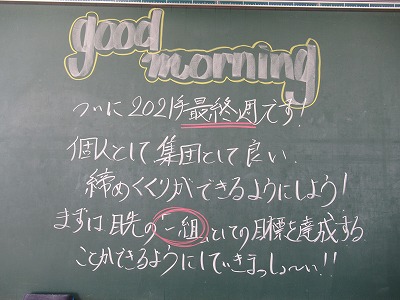 good
morning
ついに2021年最終週です！
個人として集団として良い
締めくくりができるようにしよう！
まずは目先の「一組」としての目標を達成する
ことができるようにしていきまっしょ〜い！！